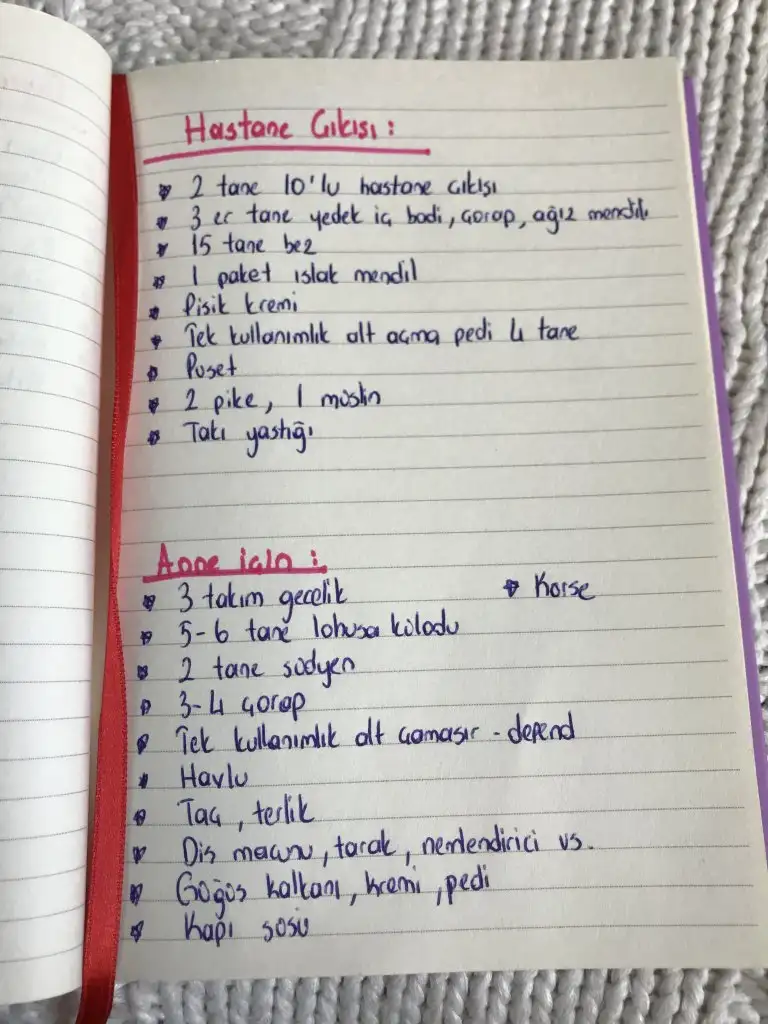 Hastane Çıkışı :
2 tane 10'lu hastane çıkışı
3 er tane yedek iç badi, çorap, ağız mendili
15 tane bez
1 paket ıslak mendil
Pişik kremi
Tek kullanımlık alt açma pedi 4 tane
Puset
2 pike, 1 müslin
Takı yastığı
Anne için :
3 takım gecelik
Korse
5-6 tane lohusa külodu
2 tane südyen
3-4 çorap
Tek kullanımlık alt çamaşır - depend
Havlu
Taç, terlik
Diş macunu, tarak, nemlendirici vs.
Göğüs kalkanı, kremi, pedi
Kapı süsü